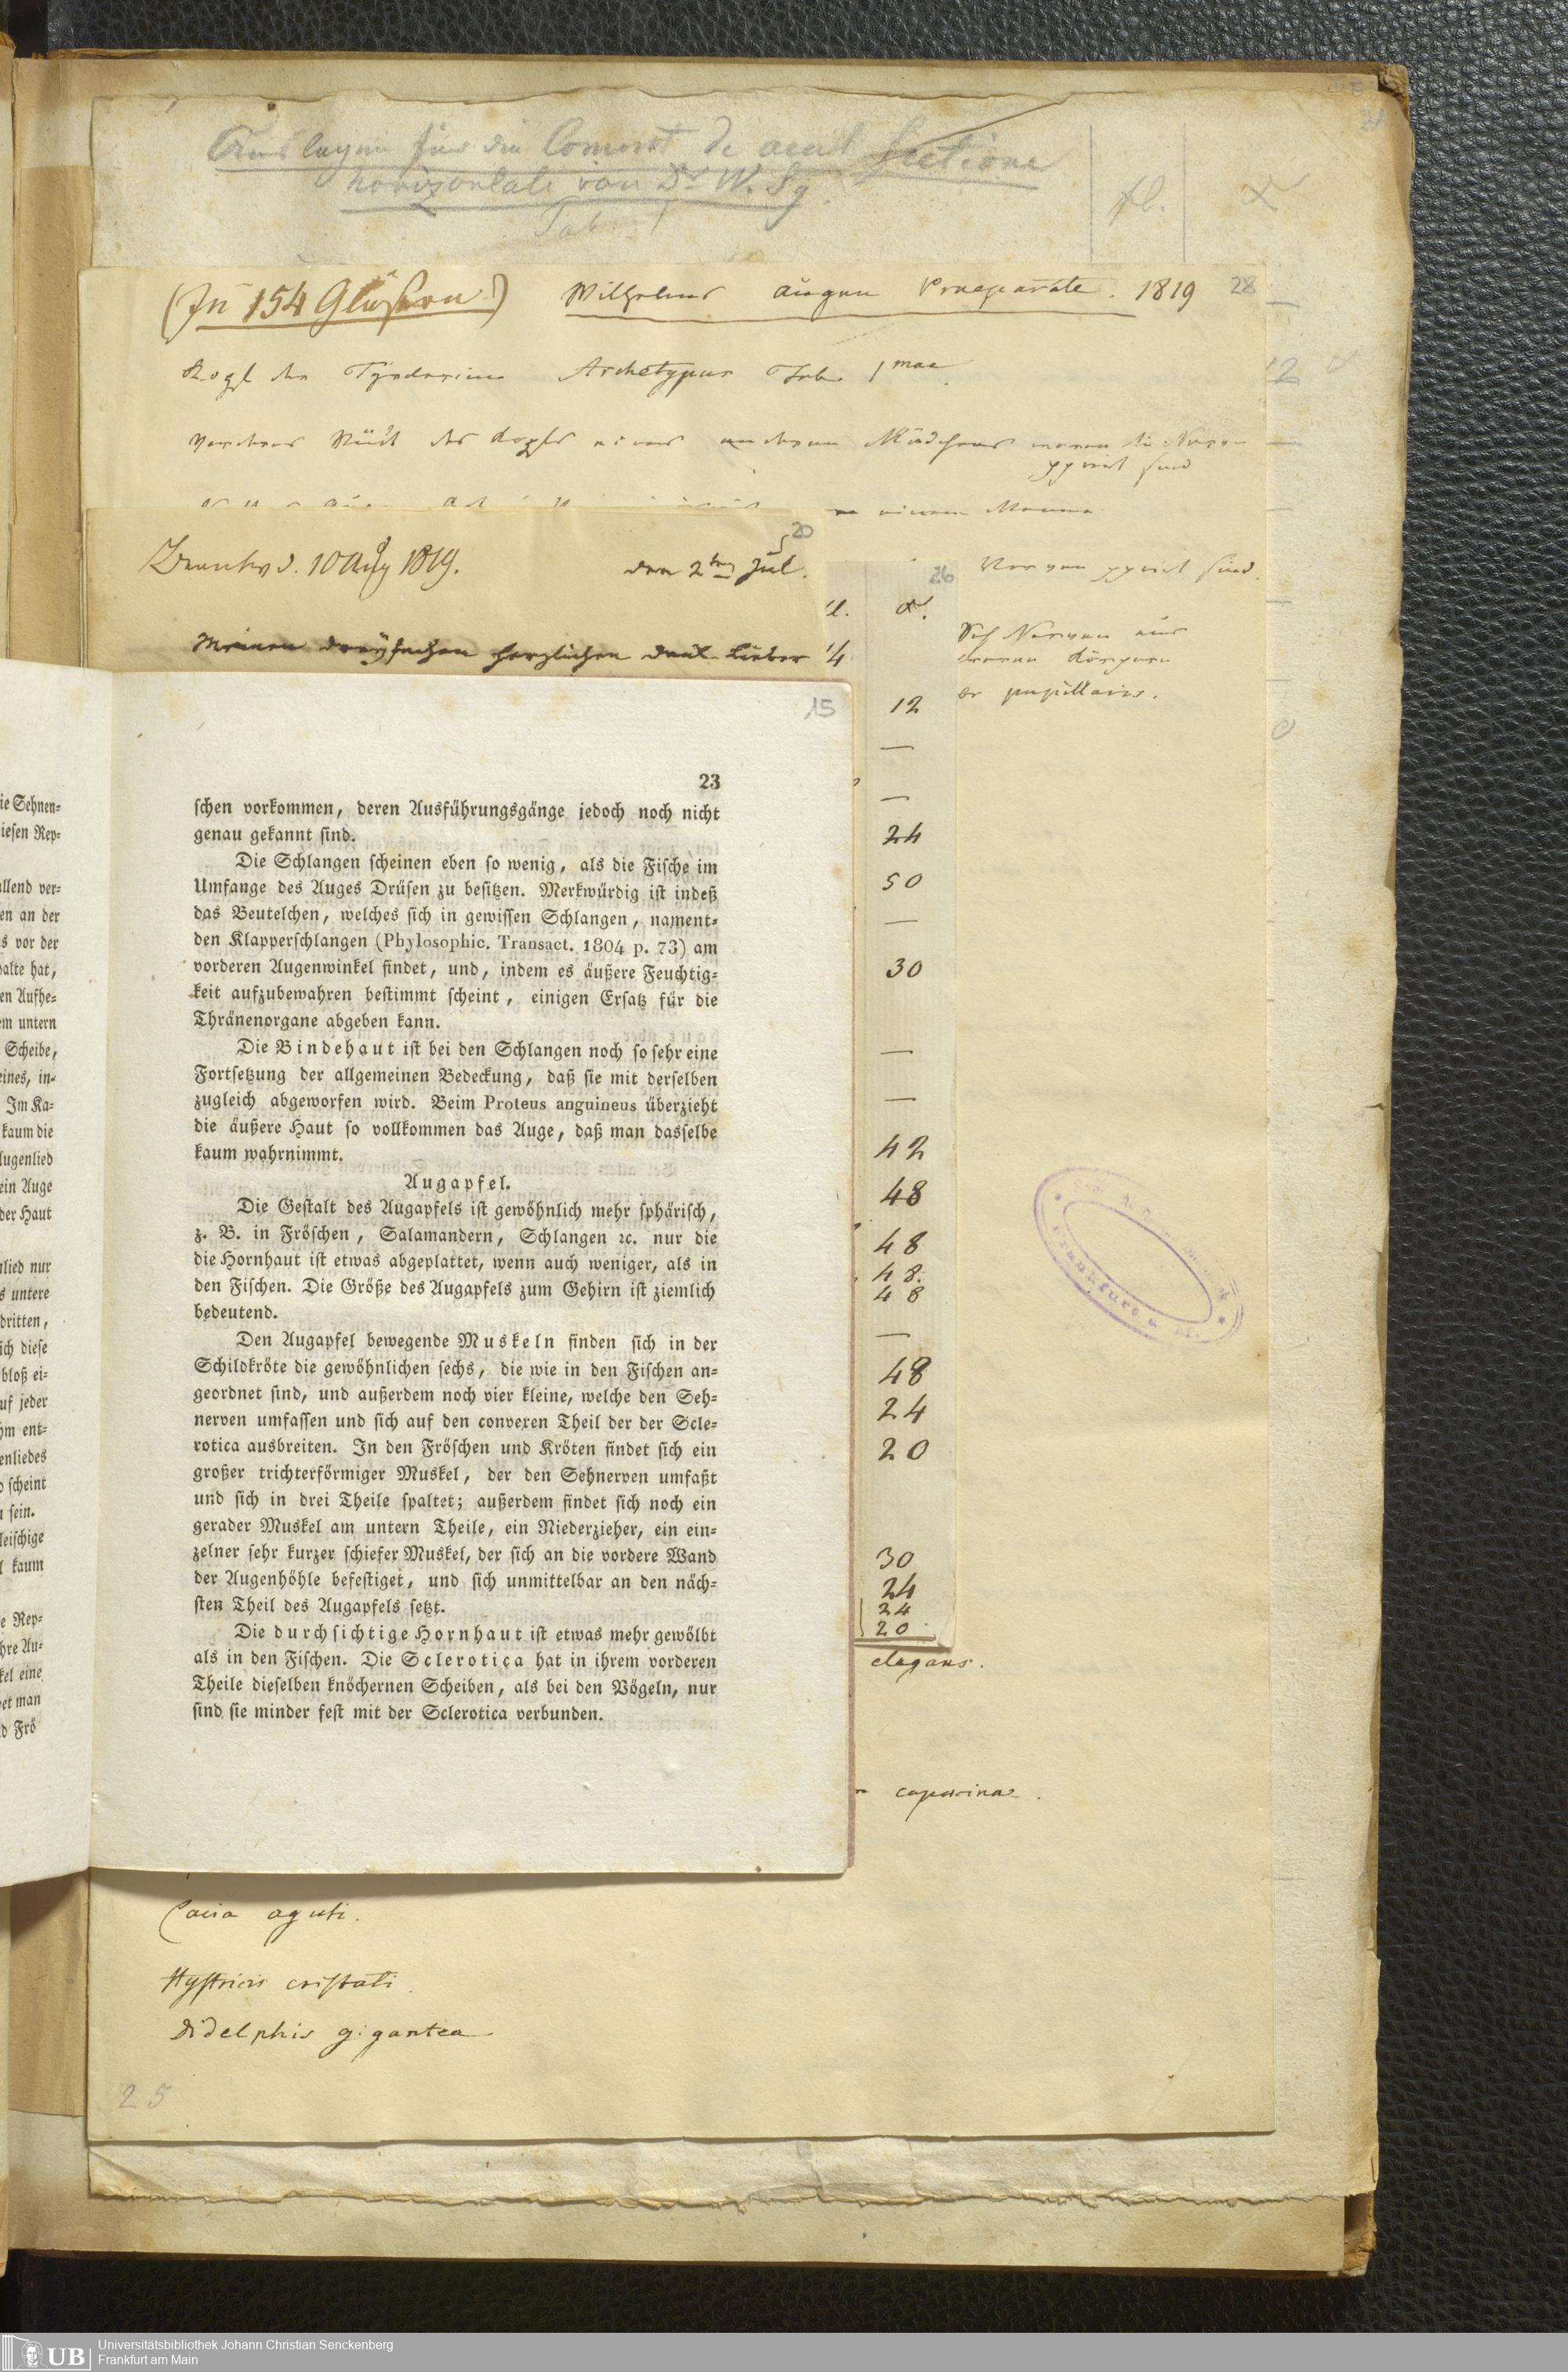 Auslagen für die Comment de ocul Sectione
horizontali von Dr W. Sg
Tab. I
fl.
(In 154 Gläsern) Wilhelms Augen Praeparate. 1819 28
Kopf der Archetypus Tab 1mae
sind
20
d. 10 Aug 1819. den 2ten Jul.
Meinen dreyfachen herzlichen Dank Lieber
26
Nerven sind.
Nerven aus
pupillaris.
1/4
12
—
—
24
50
—
30
—
—
42
48
48
48.
48
—
48
24
20
30
24
24
20
elegans.
15
23
schen vorkommen, deren Ausführungsgänge jedoch noch nicht
genau gekannt sind.
Die Schlangen scheinen eben so wenig, als die Fische im
Umfange des Auges Drüsen zu besitzen. Merkwürdig ist indeß
das Beutelchen, welches sich in gewissen Schlangen, nament-
den Klapperschlangen (Phylosophic. Transact. 1804 p. 73) am
vorderen Augenwinkel findet, und, indem es äußere Feuchtig-
keit aufzubewahren bestimmt scheint, einigen Ersatz für die
Thränenorgane abgeben kann.
Die Bindehaut ist bei den Schlangen noch so sehr eine
Fortsetzung der allgemeinen Bedeckung, daß sie mit derselben
zugleich abgeworfen wird. Beim Proteus anguineus überzieht
die äußere Haut so vollkommen das Auge, daß man dasselbe
kaum wahrnimmt.
Augapfel.
Die Gestalt des Augapfels ist gewöhnlich mehr sphärisch,
z. B. in Fröschen, Salamandern, Schlangen ꝛc. nur die
die Hornhaut ist etwas abgeplattet, wenn auch weniger, als in
den Fischen. Die Größe des Augapfels zum Gehirn ist ziemlich
bedeutend.
Den Augapfel bewegende Muskeln finden sich in der
Schildkröte die gewöhnlichen sechs, die wie in den Fischen an-
geordnet sind, und außerdem noch vier kleine, welche den Seh-
nerven umfassen und sich auf den convexen Theil der der Scle-
rotica ausbreiten. In den Fröschen und Kröten findet sich ein
großer trichterförmiger Muskel, der den Sehnerven umfaßt
und sich in drei Theile spaltet; außerdem findet sich noch ein
gerader Muskel am untern Theile, ein Niederzieher, ein ein-
zelner sehr kurzer schiefer Muskel, der sich an die vordere Wand
der Augenhöhle befestiget, und sich unmittelbar an den näch-
sten Theil des Augapfels setzt.
Die durchsichtige Hornhaut ist etwas mehr gewölbt
als in den Fischen. Die Sclerotica hat in ihrem vorderen
Theile dieselben knöchernen Scheiben, als bei den Vögeln, nur
sind sie minder fest mit der Sclerotica verbunden.
ie Sehnen-
iesen Rep-
allend ver-
en an der
s vor der
palte hat,
en Aufhe-
em untern
Scheibe,
eines, in-
Im Ka-
kaum die
Augenlied
ein Auge
der Haut
nlied nur
s untere
dritten,
sich diese
bloß ei-
uf jeder
hm ent-
enliedes
scheint
sein.
leischige
kaum
e Rep-
hre Au-
kel eine
et man
d Frö
Cavia aguti.
Hystricis cristati.
Didelphis gigantea
25
Frankfurt a. M.
UB Universitätsbibliothek Johann Christian Senckenberg
Frankfurt am Main